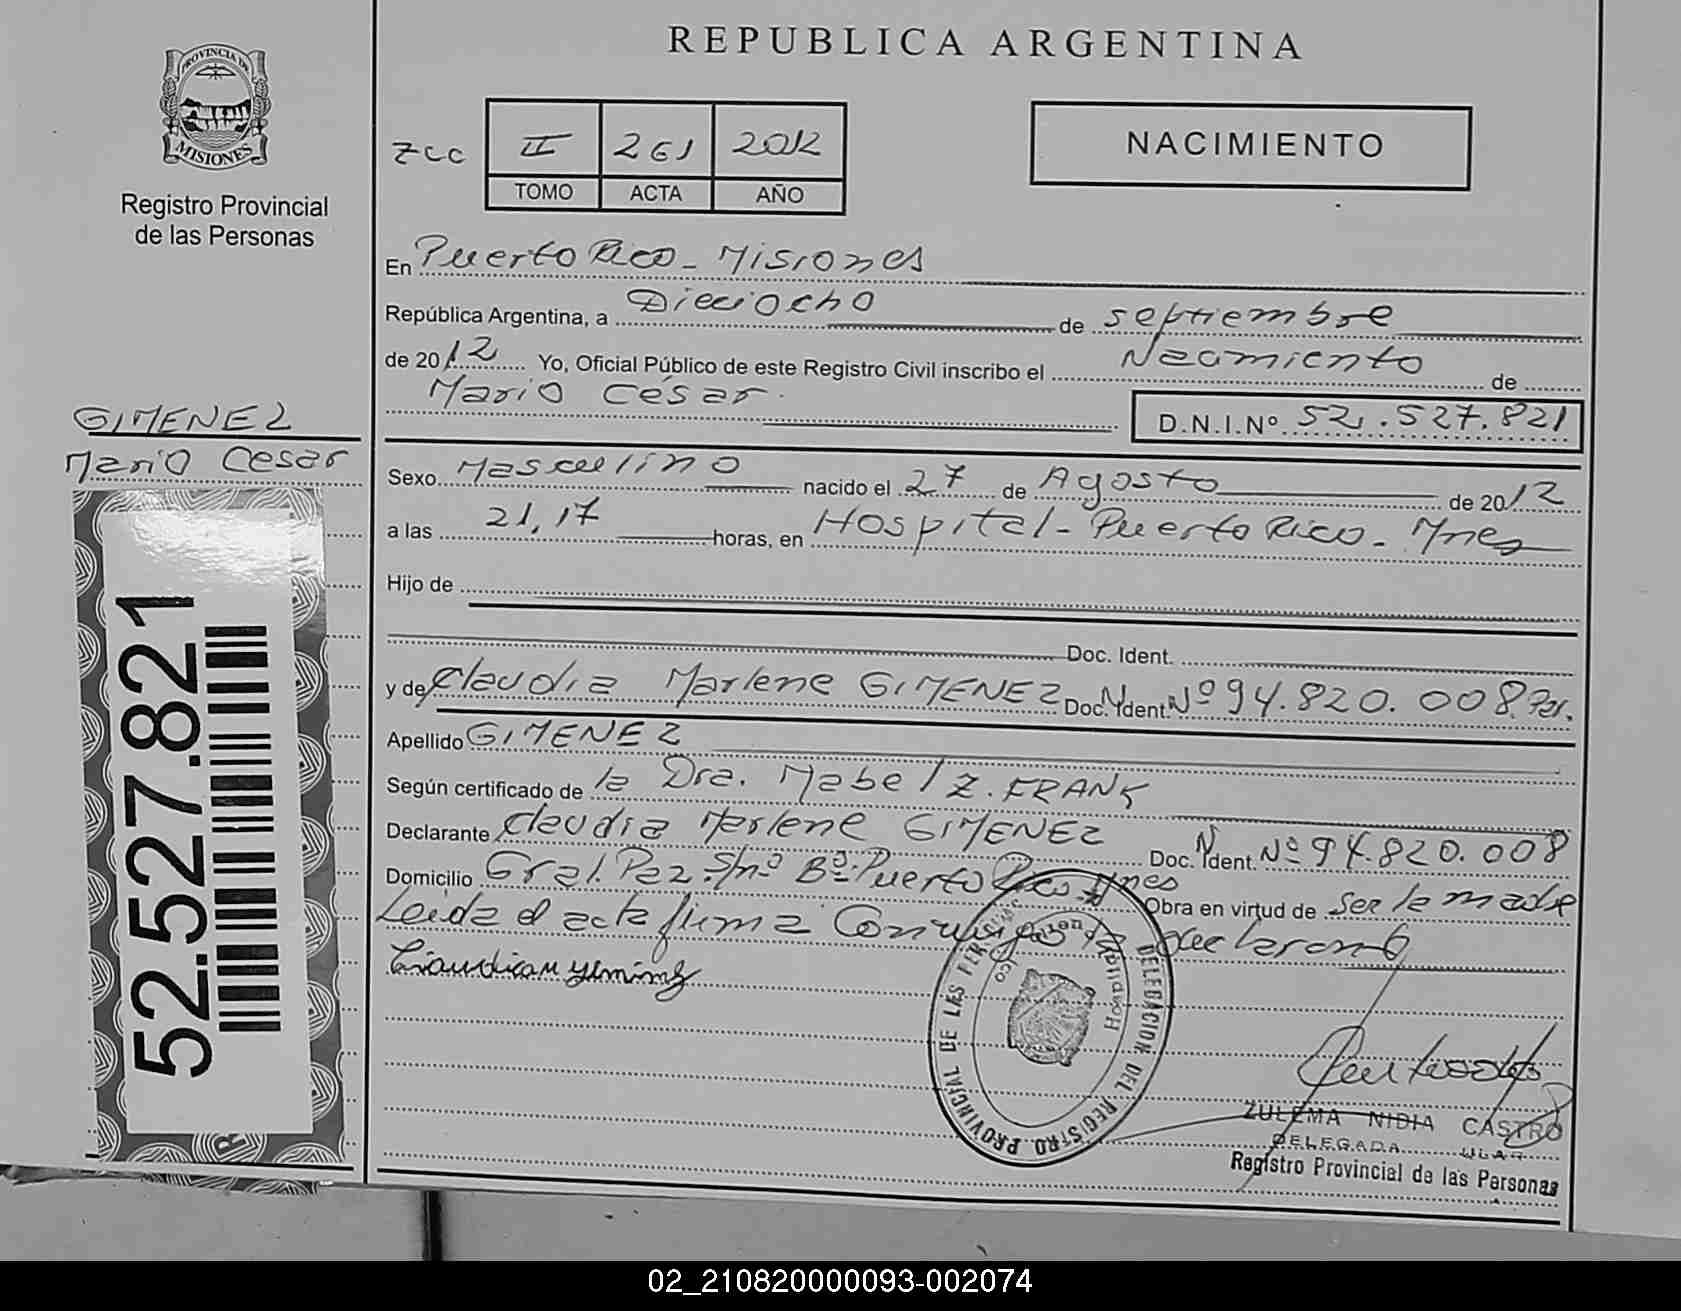 REPUBLICA ARGENTINA
PROVINCIA DE
MISIONES
Registro Provincial
de las Personas
zcc II 261 2012
TOMO ACTA AÑO
NACIMIENTO
En Puerto Rico - Misiones
República Argentina, a Dieciocho de septiembre
de 2012 Yo, Oficial Público de este Registro Civil inscribo el Nacimiento de
Mario César. D.N.I.Nº 52.527.821
GIMENEZ
Mario Cesar
Sexo Masculino nacido el 27 de Agosto de 2012
a las 21,17 horas, en Hospital - Puerto Rico - Mnes
Hijo de
Doc. Ident.
y de Claudia Marlene GIMENEZ Doc. Ident. Nº 94.820.008
Apellido GIMENEZ
Según certificado de la Dra. Mabel Z. FRANK
Declarante Claudia Marlene GIMENEZ Doc. Ident. Nº 94.820.008
Domicilio Gral. Paz S/nº Bº Puerto Rico Mnes Obra en virtud de ser la madre
Leida el acta firma Conmigo la declarante
52.527.821
DELEGACION DEL REGISTRO PROVINCIAL DE LAS PERSONAS
Hospital Puerto Rico
ZULEMA NIDIA CASTRO
DELEGADA
Registro Provincial de las Personas
02_210820000093-002074